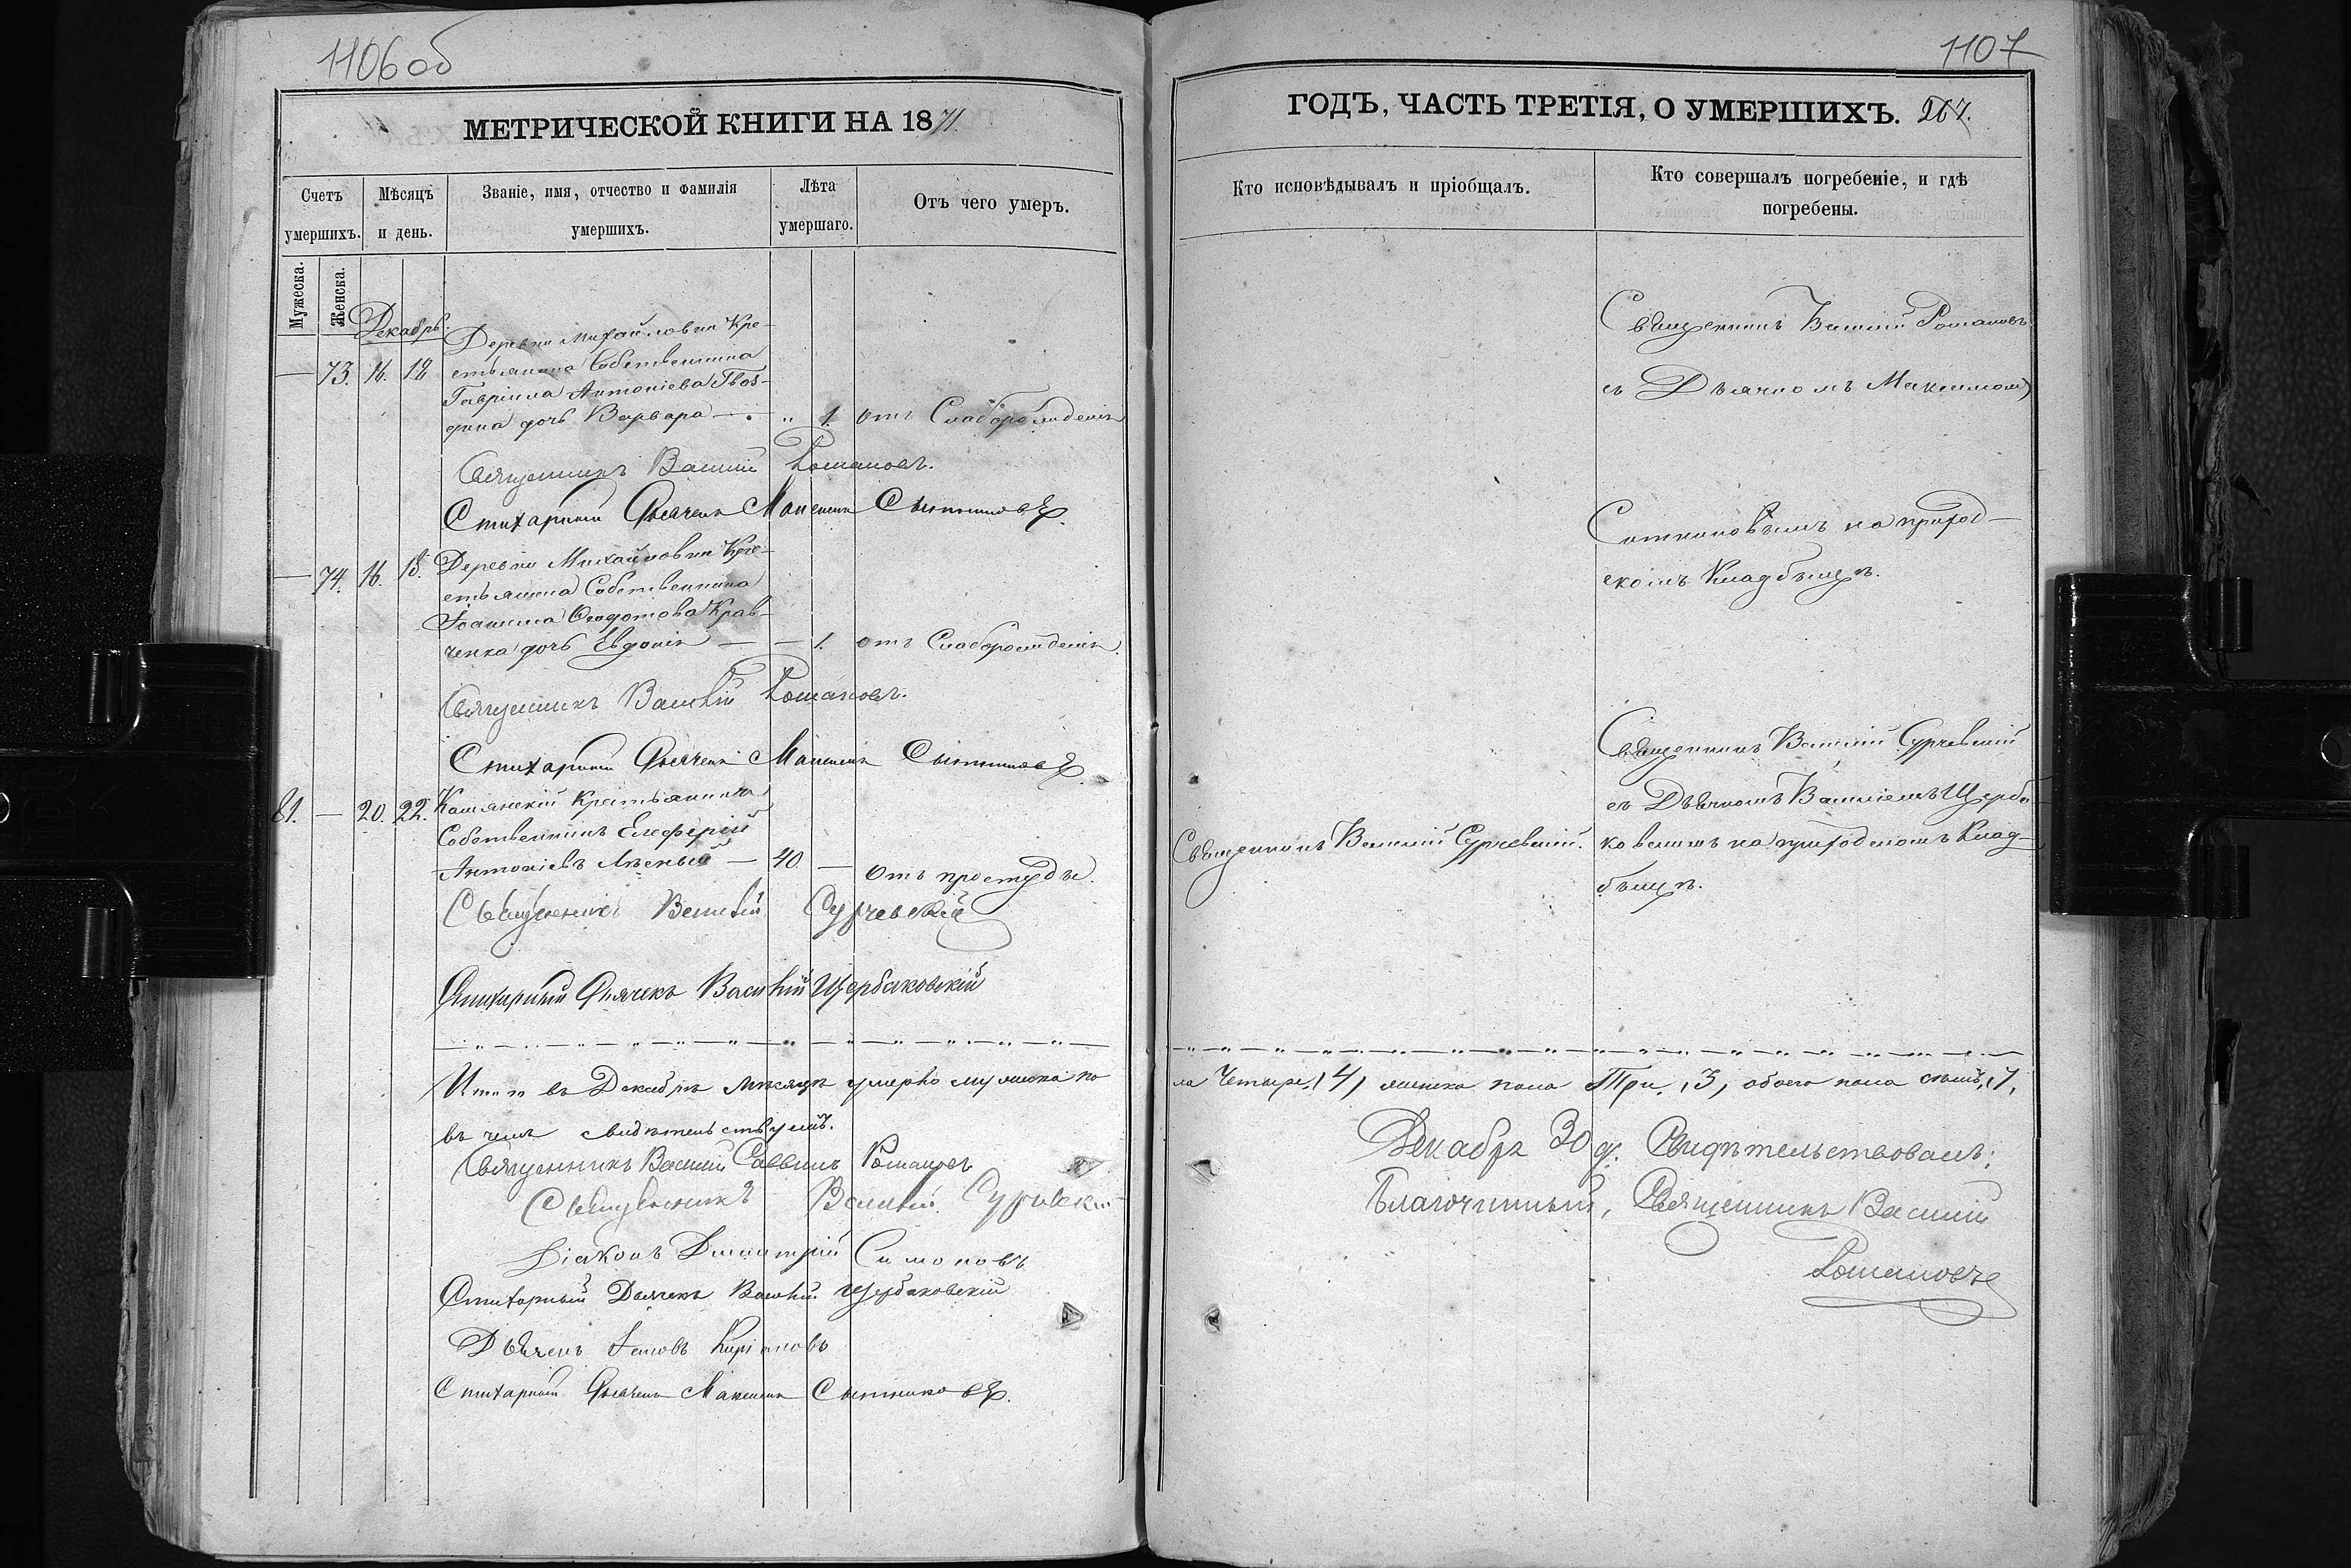 1106об
МЕТРИЧЕСКОЙ КНИГИ НА 1871.
Счетъ умершихъ.
Мѣсяцъ и день.
Званіе, имя, отчество и фамилія умершихъ.
Лѣта умершаго.
Отъ чего умеръ.
Мужеска.
Женска.
Декабрь.
Деревни Михайловки Кре-
— 73. 16. 18 стьянина Собственника
Гавріила Антоніева Гвоз-
дика дочь Варвара — „ 1. отъ Слаборожденія
Священникъ Василій Романовъ.
Стихарный Дьячекъ Максимъ Сытниковъ.
Деревни Михайловки Кре-
— 74. 16. 18. стьянина Собственника
Іоанна Ѳеодотова Крав-
ченка дочь Евдокія — — 1. отъ Слаборожденія.
Священникъ Василій Романовъ.
Стихарный Дьячекъ Максимъ Сытниковъ.
81. — 20. 22. Крестьянинъ
Собственникъ Елеферій
Антоніевъ — 40 — отъ простуды.
Священникъ Василій Сурчевскій
Стихарный Дьячекъ Василій Щербаковскій
Итого въ Декабрѣ мѣсяцѣ умерло мужеска по
въ чемъ свидѣтельствуемъ.
Священникъ Василій Саввинъ Романовъ
Священникъ Василій Сурчевскій
Діаконъ Димитрій Симоновъ
Стихарный Дьячекъ Василій Щербаковскій
Дьячекъ Іаковъ Киріановъ
Стихарный Дьячекъ Максимъ Сытниковъ.
1107
ГОДЪ, ЧАСТЬ ТРЕТІЯ, О УМЕРШИХЪ. 267.
Кто исповѣдывалъ и пріобщалъ.
Кто совершалъ погребеніе, и гдѣ погребены.
Священникъ Василій Романовъ
съ Дьячкомъ Максимомъ
Сытниковымъ на приход-
скомъ Кладбищѣ.
Священникъ Василій Сурчевскій
съ Дьячкомъ Василіемъ Щерба-
Священникъ Василій Сурчевскій. ковскимъ на приходскомъ Клад-
бищѣ.
ла Четыре, (4) женска пола Три, (3) обоего пола семь, (7)
Декабря 30 д. Свидѣтельствовалъ:
Благочинный, Священникъ Василій
Романовъ